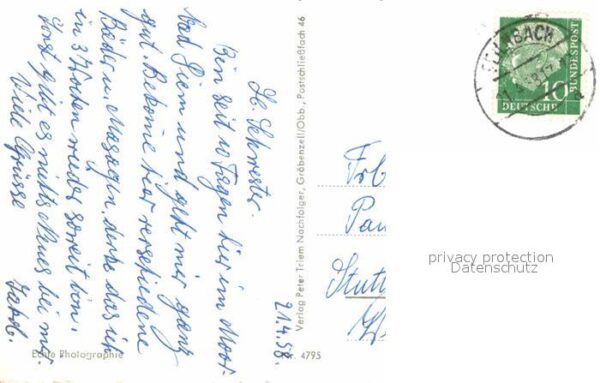 21.4.58.
Lb. Schwester.
Bin seit 10 Tagen hier im Moor-
bad Siem und geht mir ganz
gut. Bekome hier verschiedene
Bäder u. Massagen, denke das ich
in 3 Wochen wieder soweit bin.
Sonst gibt es nichts Neues bei mir.
Viele Grüsse
Jakob.
Echte Photographie
Verlag Peter Triem Nachfolger, Gröbenzell/Obb., Postschließfach 46
Nr. 4795
10
DEUTSCHE
BUNDESPOST
Frl
Pau
Stutt
privacy protection
Datenschutz